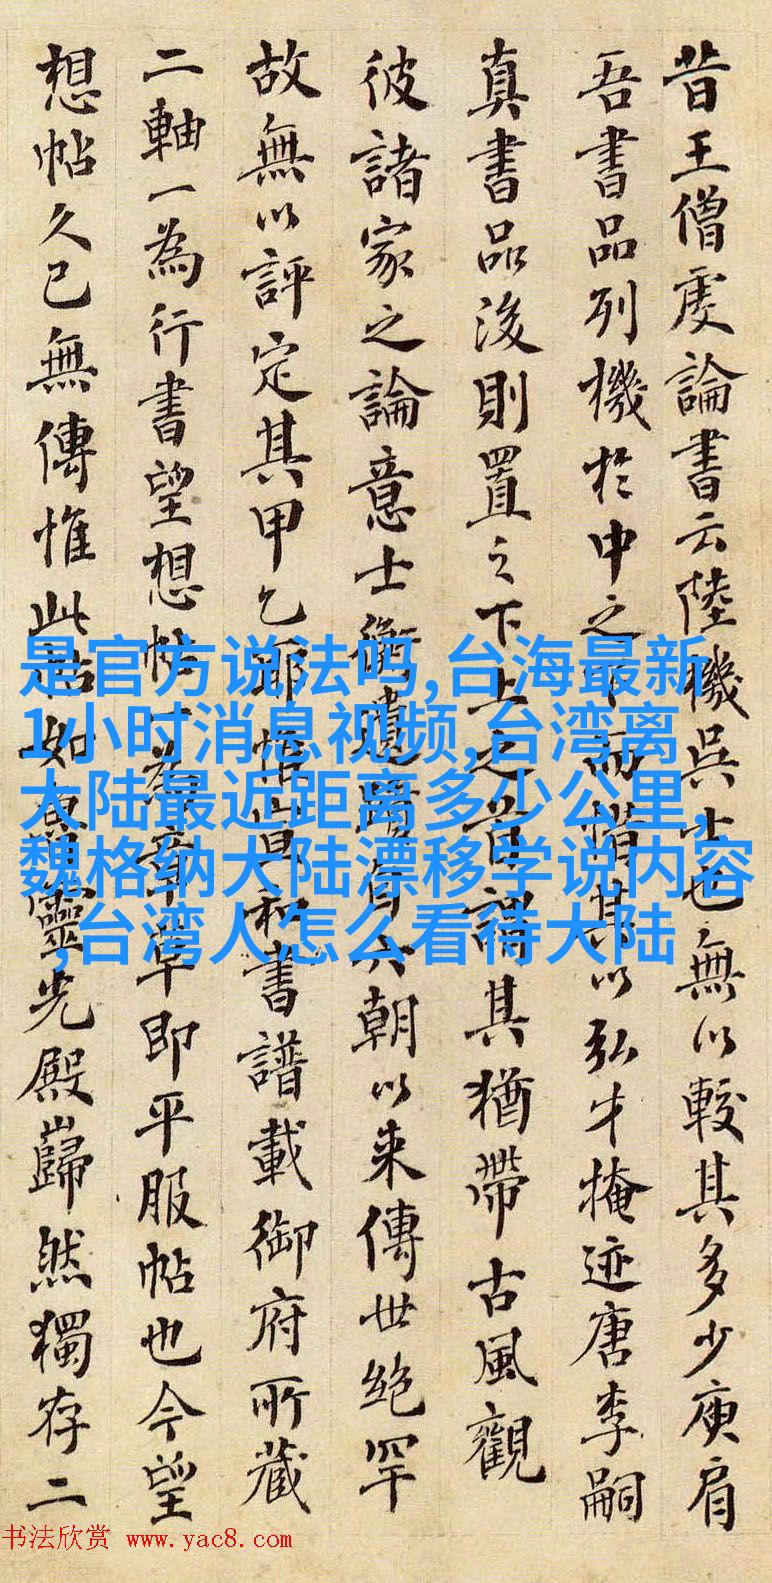 昔王僧虔論書云陸機吳士也無以較其多少庾肩
吾書品列機於中之下而惜其以弘才掩迹唐李嗣
真書品後則置之下上之首謂其猶帶古風觀
彼諸家之論意士衡遺蹟自六朝以来傳世絶罕
故無以評定其甲乙耶惟宣和書譜載御府所藏
二軸一為行書望想帖一為章草即平服帖也今望
想帖久已無傳惟此帖如魯靈光殿巋然獨存二
是官方说法吗,台海最新
1小时消息视频,台湾离
大陆最近距离多少公里,
魏格纳大陆漂移学说内容
,台湾人怎么看待大陆
书法欣赏 www.yac8.com